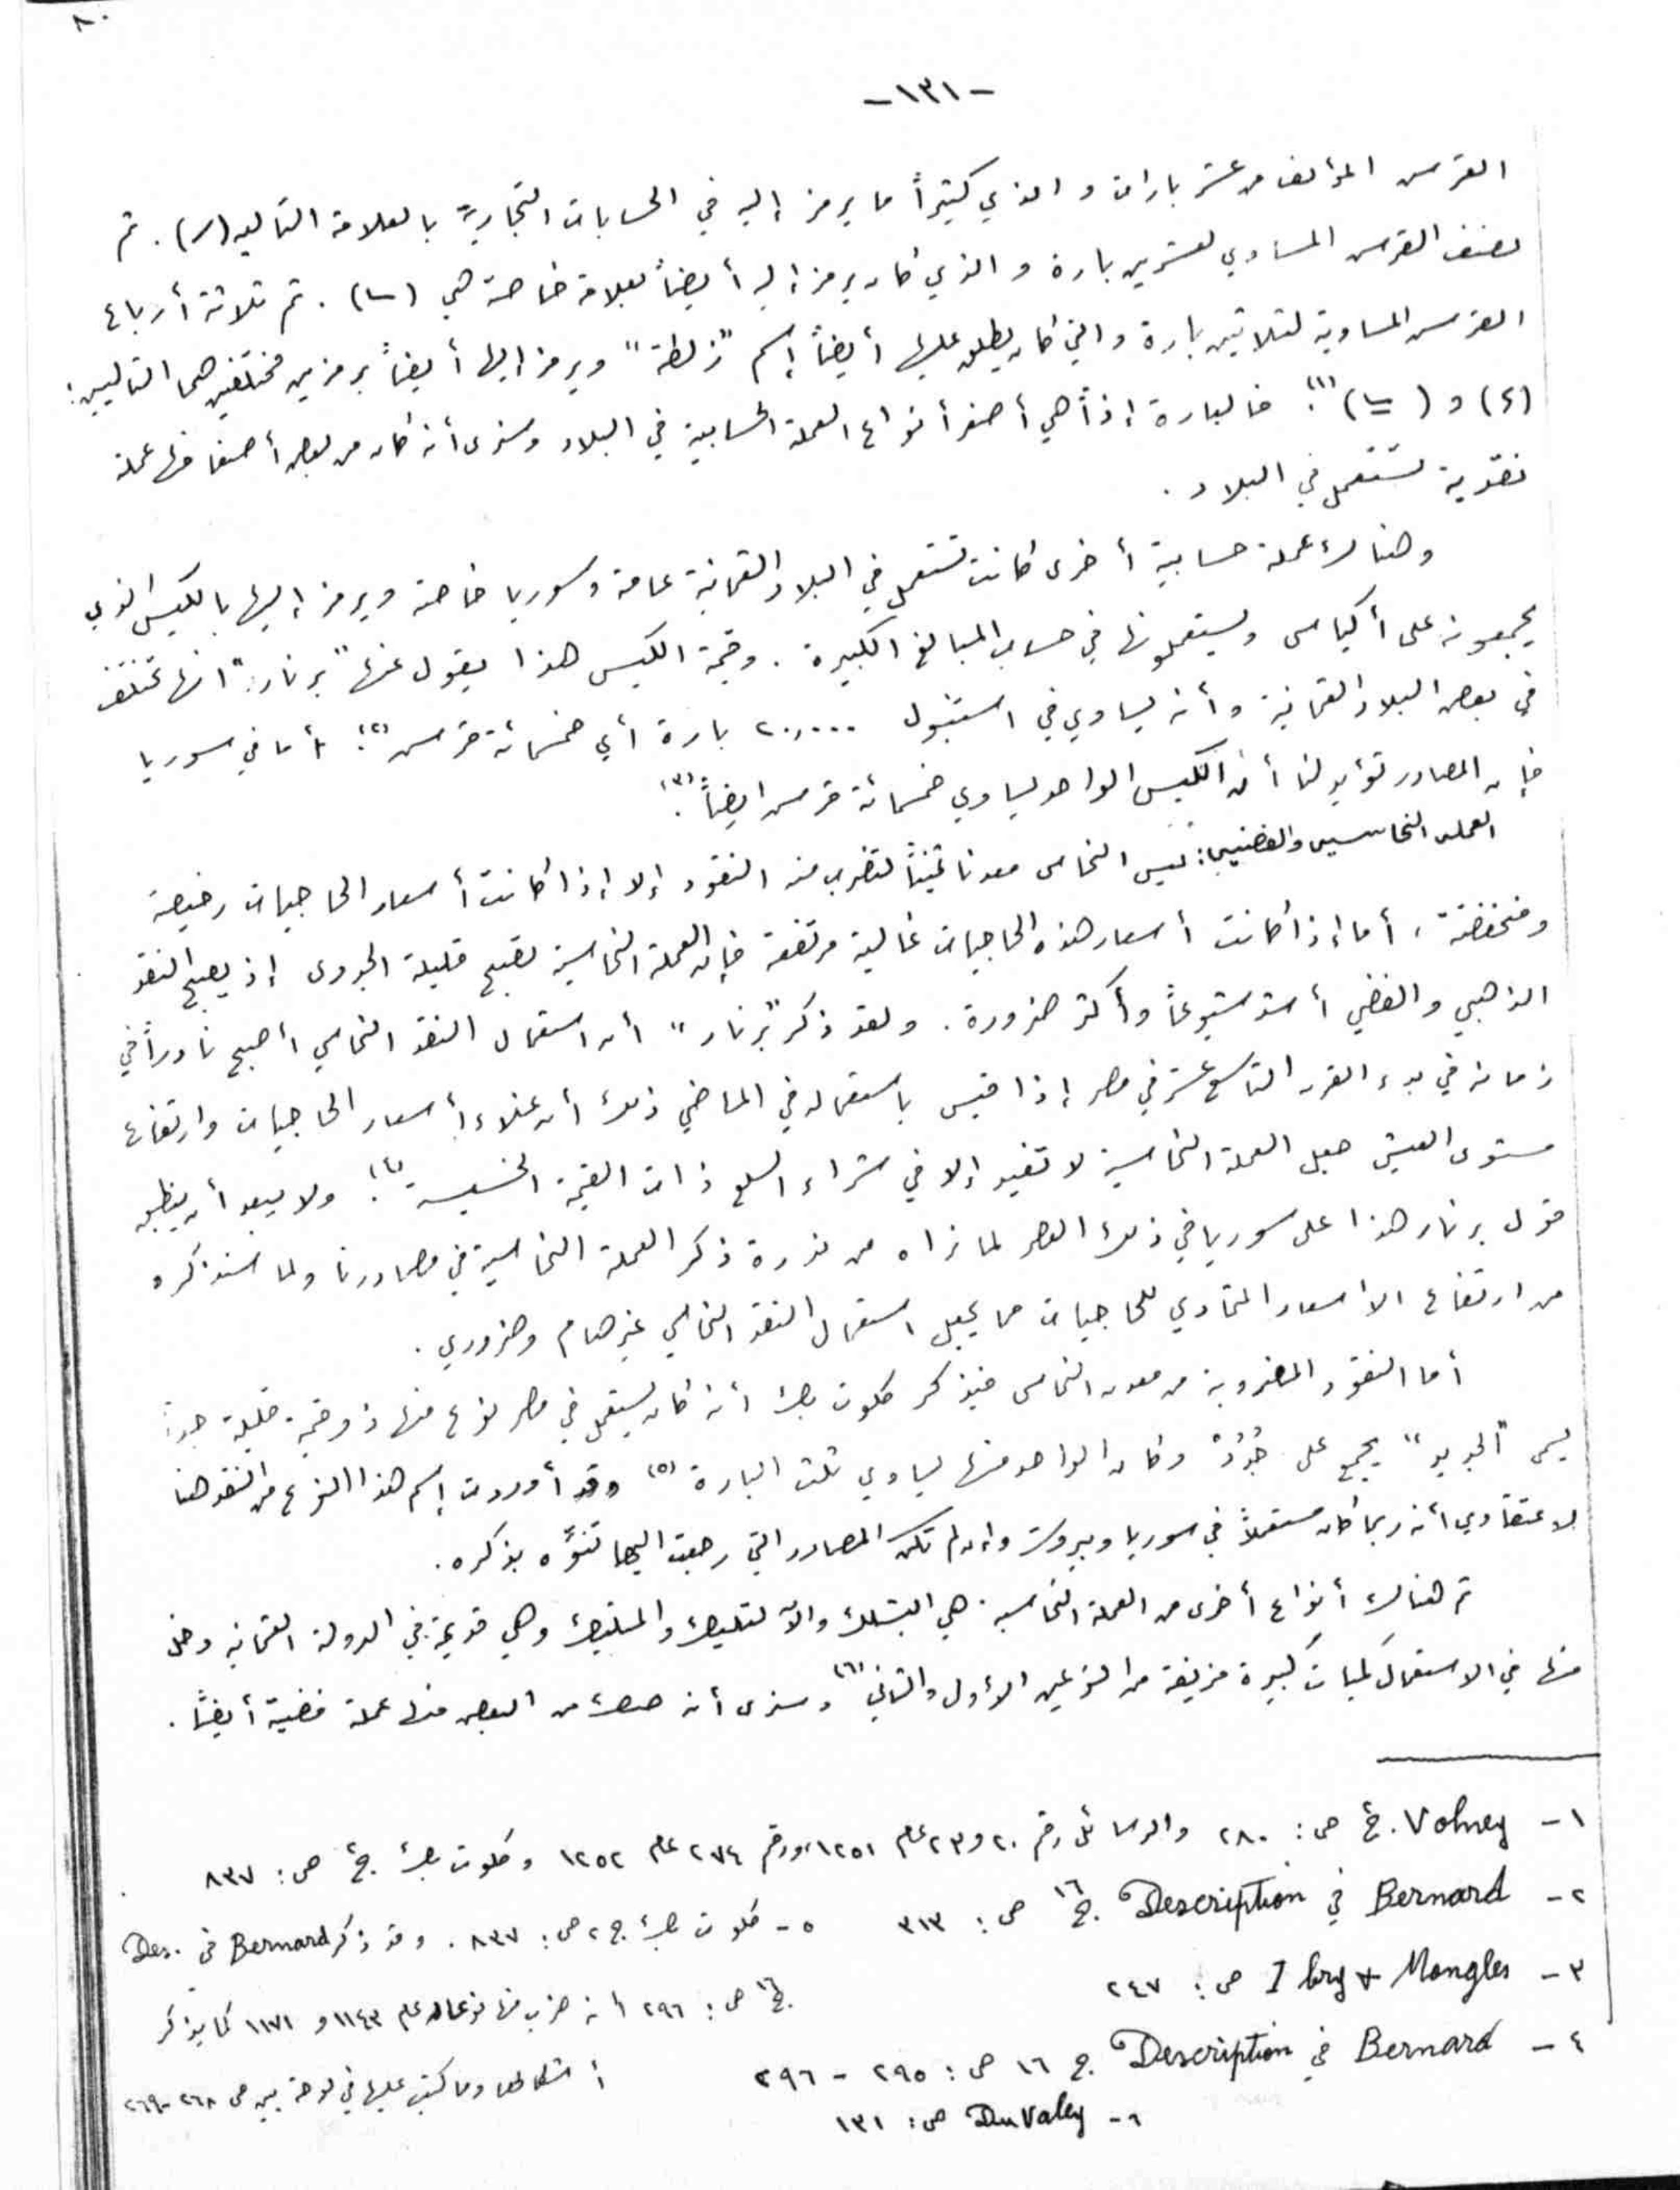 ٨٠
-١٣١-
القرش المؤلف من عشر بارات والذي كثيراً ما يرمز إليه في الحسابات التجارية بالعلامة التالية (ر). ثم
نصف القرش المساوي لعشرين بارة والذي كان يرمز إليه أيضاً بعلامة خاصة هي (). ثم ثلاثة أرباع
القرش المساوية لثلاثين بارة والتي كان يطلق عليها أيضاً إسم "زلطة" ويرمز إليها أيضاً برمزين مختلفين هما التاليين:
(٤) و ()(١). فالبارة إذاً هي أصغر أنواع العملة الحسابية في البلاد وسنرى أنه كان من بعض أصنافها عملة
نقدية تستعمل في البلاد.
وهناك عملة حسابية أخرى كانت تستعمل في البلاد العثمانية عامة وسوريا خاصة ويرمز إليها بالكيس الذي
يجمعونه على أكياس ويستعملونها في حساب المبالغ الكبيرة. وقيمة الكيس هذا يقول عنها "برنار" انها تختلف
في بعض البلاد العثمانية وأنه يساوي في استنبول ٢٠,٠٠٠ بارة أي خمسمائة قرش(٢). أما في سوريا
فإن المصادر تؤيد لنا أن الكيس الواحد يساوي خمسمائة قرش ايضاً(٣).
العملة النحاسية والفضية: ليس النحاس معدنا ثميناً لتضرب منه النقود إلا إذا كانت أسعار الحاجيات رخيصة
ومنخفضة، أما إذا كانت أسعار هذه الحاجيات غالية مرتفعة فإن العملة النحاسية تصبح قليلة الجدوى إذ يصبح النقد
الذهبي والفضي أشد شيوعاً وأكثر ضرورة. ولقد ذكر "برنار" أن استعمال النقد النحاسي أصبح نادراً في
زمانه في بدء القرن التاسع عشر في مصر إذا قيس باستعماله في الماضي ذلك أن غلاء أسعار الحاجيات وارتفاع
مستوى العيش جعل العملة النحاسية لا تفيد إلا في شراء السلع ذات القيمة الخسيسة(٤). ولا يبعد أن ينطبق
قول برنار هذا على سوريا في ذلك العصر لما نراه من ندرة ذكر العملة النحاسية في مصادرنا ولما سنذكره
من ارتفاع الاسعار المتمادي للحاجيات مما يجعل استعمال النقد النحاسي غير هام وضروري.
أما النقود المضروبة من معدن النحاس فيذكر كلوت بك أنه كان يستعمل في مصر نوع منها ذو قيمة قليلة جداً
يسمى "الجديد" يجمع على جُدُدْ وكان الواحد منها يساوي ثلث البارة(٥) وقد أوردت إسم هذا النوع من النقد هنا
لاعتقادي أنه ربما كان مستعملاً في سوريا وبيروت وإن لم تكن المصادر التي رجعت اليها تنوّه بذكره.
ثم هناك أنواع أخرى من العملة النحاسية. هي البشلك والآلتليك والمتليك وهي قديمة في الدولة العثمانية ودخل
منها في الاستعمال كميات كبيرة مزيفة من النوعين الأول والثاني(٦) وسنرى أنه صك من البعض منها عملة فضية أيضاً.
١- Volney. ج٢ ص: ٢٨٠ والرسائل رقم ٢٠ و٢٣ عام ١٢٥١، ورقم ٢٧٤ عام ١٢٥٢ وكلوت بك ج٢ ص: ٨٣٧
٢- Bernard في Description ج١٦ ص: ٣١٣
٣- Irby & Mangles ص: ٢٤٧
٤- Bernard في Description ج ١٦ ص: ٢٩٥ - ٢٩٦
٥- كلوت بك ج٢ ص: ٨٣٧. وقد ذكر Bernard في Des.
ج١٦ ص: ٢٩٦ أنه ضرب منها نوعان عام ١١٤٣ و ١١٧١ كما يذكر
أشكالها وما كتب عليها في لوحة بين ص ٢٦٨-٢٦٩
٦- Du Valey ص: ١٣١